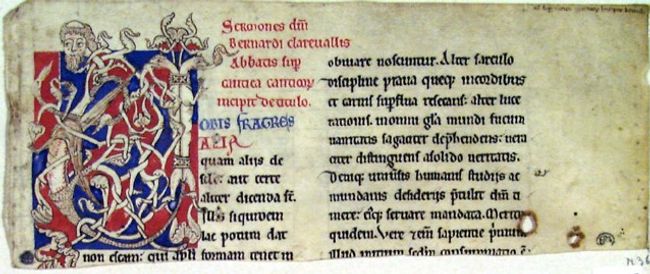 Sermones dm̄
Bernardi clarevallis
Abbatis sup̄
cantica canticoꝝ
incipit de titulo.
OBIS FRATRES
ALIA
quam aliis de
sc̄lo. aut certe
aliter dicenda st̄.
Illis siquidem
lac potum dat
non escam: qui apl̄i formam tenet in
obviare noscuntur. Alter sarculo
discipline prava queq; in moribus
et carnis sup̄flua resecans: alter luce
rationis. mundi gl̄a fucum
vanitatis sagaciter dep̄hendens: vera
citer distinguens a solido veritatis.
Deniq; universis humanis studiis ac
mundanis desideriis p̄tulit dm̄ ti
mere: eiusq; servare mandata. Merito
quidem. Vere